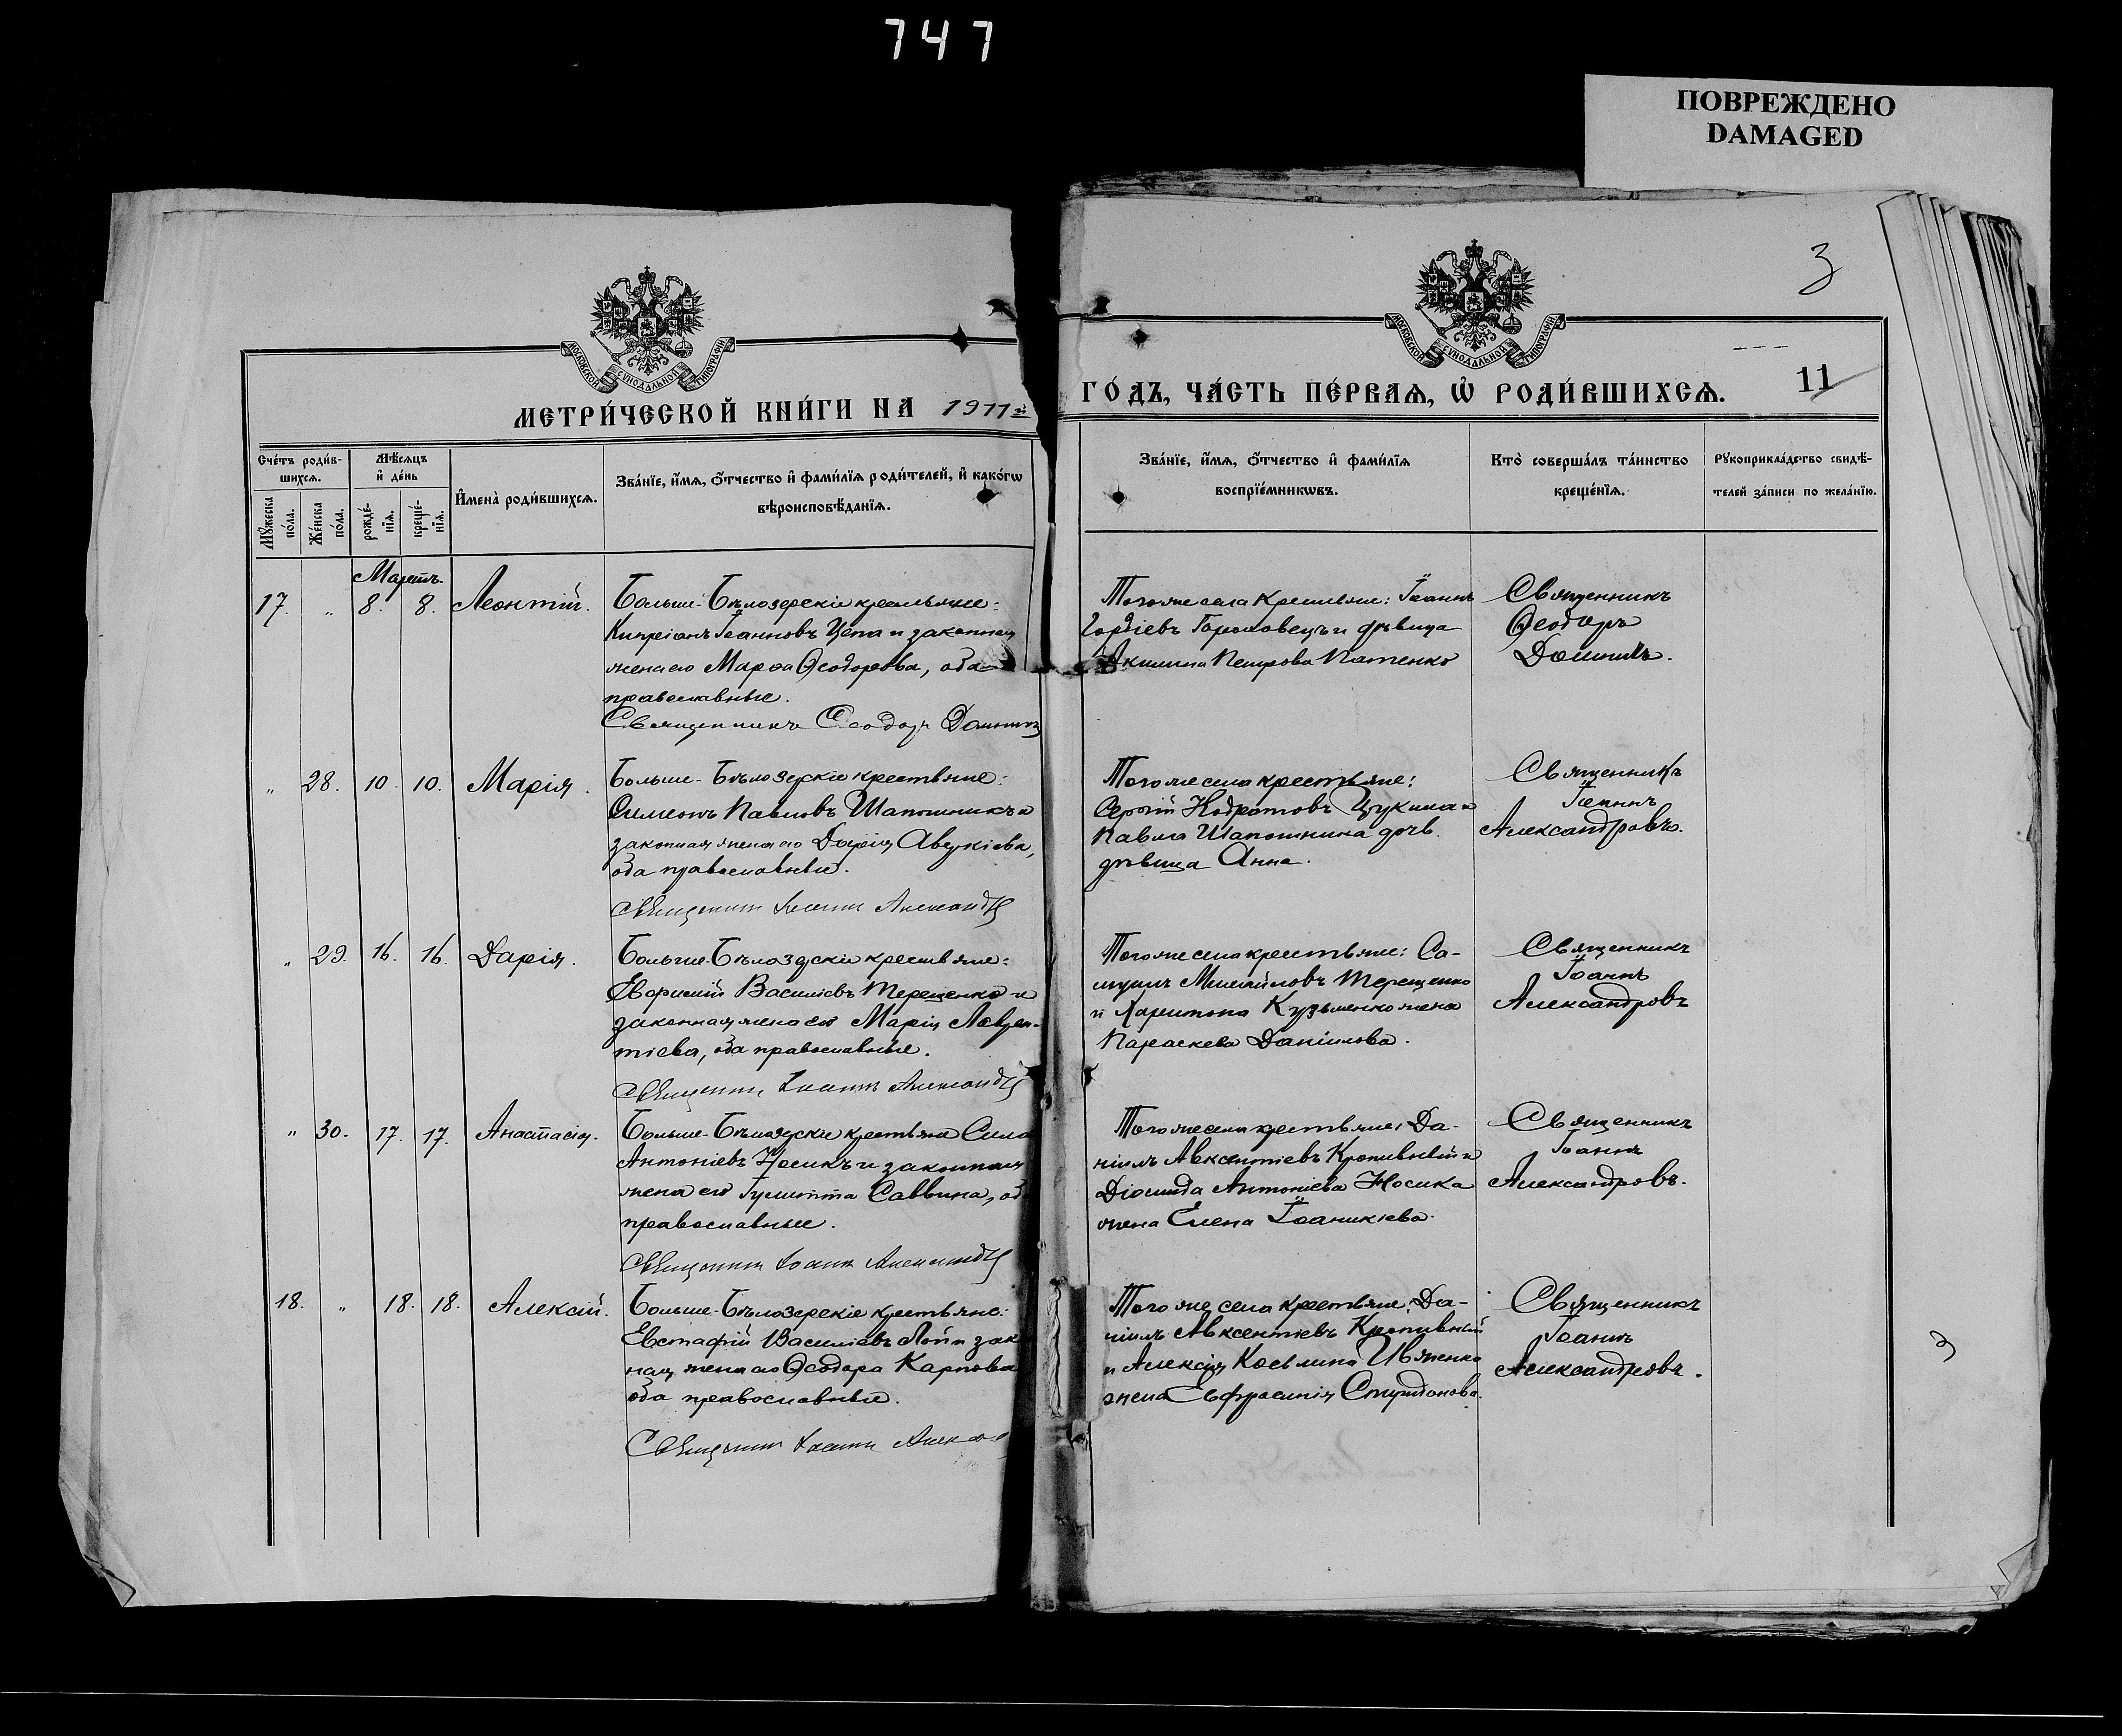 747
ПОВРЕЖДЕНО
DAMAGED
3
МОСКОВСКОЙ СУНОДАЛЬНОЙ ТИПОГРАФІИ
МОСКОВСКОЙ СУНОДАЛЬНОЙ ТИПОГРАФІИ
МЕТРИ́ЧЕСКОЙ КНИ́ГИ НА 1911 й ГО́ДЪ, ЧА́СТЬ ПЕ́РВАѦ, Ѡ҆ РОДИ́ВШИХСѦ.
11
Сче́тъ роди́в-
шихсѧ.
Мꙋжеска по́ла.
Же́нска по́ла.
Мѣ́сѧцъ
и҆ де́нь
рожде́-
нїѧ.
креще́-
нїѧ.
И҆мена̀ роди́вшихсѧ.
Зва́нїе, и҆́мѧ, ѻ҆́тчество и҆ фами́лїѧ роди́телей, и҆ како́гѡ
вѣроисповѣ́данїѧ.
Зва́нїе, и҆́мѧ, ѻ҆́тчество и҆ фами́лїѧ
воспрїе́мникѡвъ.
Кто̀ соверша́лъ та́инство
креще́нїѧ.
Рꙋкоприкла́дство свидѣ́-
телей за́писи по жела́нїю.
Мартъ.
17. „ 8. 8. Леонтій.
Больше-Бѣлозерскіе крестьяне:
Кипріанъ Іоанновъ Цепа и законная
жена его Марѳа Ѳеодорова, оба
православные.
Священникъ Ѳеодоръ
Того же села крестьяне: Іоаннъ
Гордіевъ Гороховецъ и дѣвица
Акилина Петрова Патенко
Священникъ
Ѳеодоръ
„ 28. 10. 10. Марія.
Больше-Бѣлозерскіе крестьяне:
Симеонъ Павловъ Шапошникъ и
законная жена его Дарія Авркіева,
оба православные.
Священникъ Іоаннъ Александр
Того же села крестьяне:
Сергій Цукина и
Павла Шапошника дочь
дѣвица Анна.
Священникъ
Іоаннъ
Александровъ.
„ 29. 16. 16. Дарія.
Больше-Бѣлозерскіе крестьяне:
Евфимій Василіевъ Терещенко и
законная жена его Марія Лаврен-
тіева, оба православные.
Священникъ Іоаннъ Александр
Того же села крестьяне: Са-
муилъ Михайловъ Терещенко
и Харитона Кузьменко жена
Параскева Даніилова.
Священникъ
Іоаннъ
Александровъ
„ 30. 17. 17. Анастасія.
Больше-Бѣлозерскіе крестьяне Сила
Антоніевъ Носикъ и законная
жена его Іулитта Саввина, об
православные.
Священникъ Іоаннъ Александр
Того же села крестьяне: Да-
ніилъ Авксентіевъ Кропивный и
Діомида Антоніева Носика
жена Елена Іоаникіева.
Священникъ
Іоаннъ
Александровъ.
18. „ 18. 18. Алексій.
Больше-Бѣлозерскіе крестьяне:
Евстафій Василіевъ и зак
ная жена его Ѳеодора Карпова
оба православные.
Священникъ Іоаннъ Алек
Того же села крестьяне: Да-
ніилъ Авксентіевъ Кропивный
и Алексія Косьмина Ивженко
жена Евфросинія Спиридонова.
Священникъ
Іоаннъ
Александровъ.
3